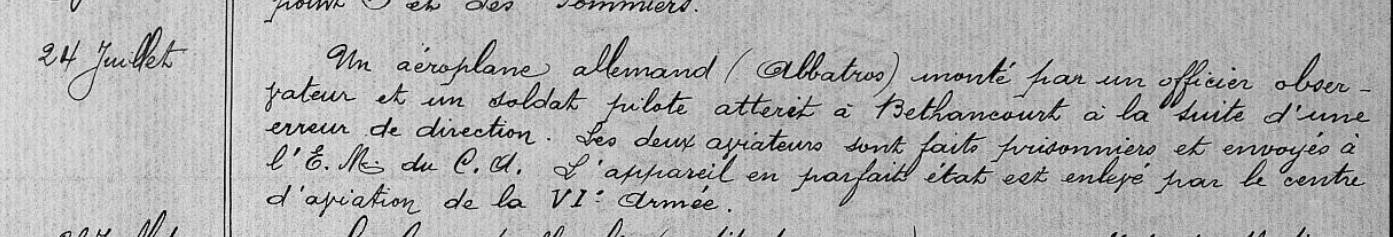 point et des Sommiers.
24 Juillet
Un aéroplane allemand (Albatros) monté par un officier obser-
vateur et un soldat pilote atterit à Bethancourt à la suite d'une
erreur de direction. Les deux aviateurs sont faits prisonniers et envoyés à
l'E. M. du C. A. L'appareil en parfait état est enlevé par le centre
d'aviation de la VIe Armée.